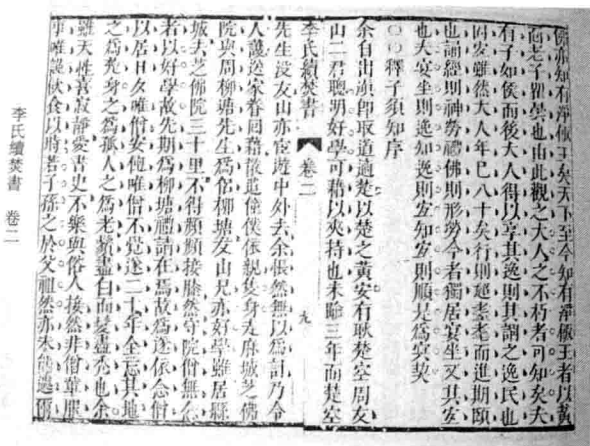 佛亦知有淨飯王矣天下至今知有淨飯王者以黃
面老子瞿曇也由此觀之大人之不朽者可知矣夫
有子如侯而後大人得以享其逸則其謂之逸民也
固宜雖然大人年已八十矣行則逾耄耋而進期頤
也誦經則神勞禮佛則形勞今者獨居宴坐又其宜
也夫宴坐則逸知逸則安知安則順是爲冥契
〇〇釋子須知序
余自出滇即取道適楚以楚之黃安有耿楚空周友
山二君聰明好學可藉以夾持也未踰三年而楚空
李氏續焚書 卷二 九
先生沒友山亦宦遊中外去余悵然無以爲計乃令
人護送家眷回籍散遣僮僕依親隻身走麻城芝佛
院與周柳塘先生爲侶柳塘友山兄亦好學雖居縣
城去芝佛院三十里不得頻頻接膝然守院僧無念
者以好學故先期爲柳塘禮請在焉故余遂依念僧
以居日久唯僧安飽唯僧不覺遂二十年全忘其地
之爲楚身之爲孤人之爲老鬚盡白而髮盡禿也余
雖天性喜寂靜愛書史不樂與俗人接然非僧輩服
事唯謹飲食以時若子孫之於父祖然亦未能遽爾
李氏續焚書 卷二